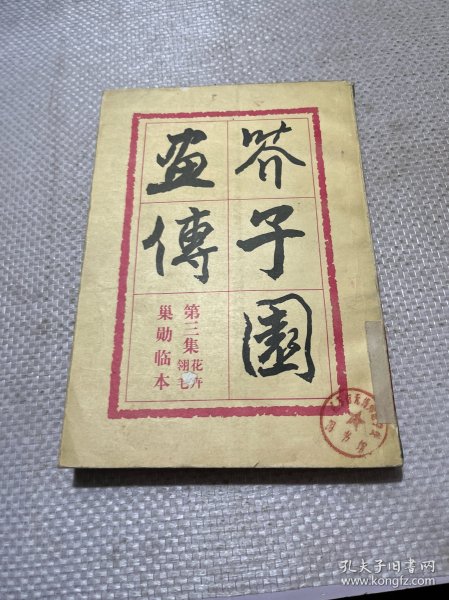 芥子園
畫傳
第三集 花卉翎毛
巢勋临本
图书馆
孔夫子旧书网
www.kongfz.com